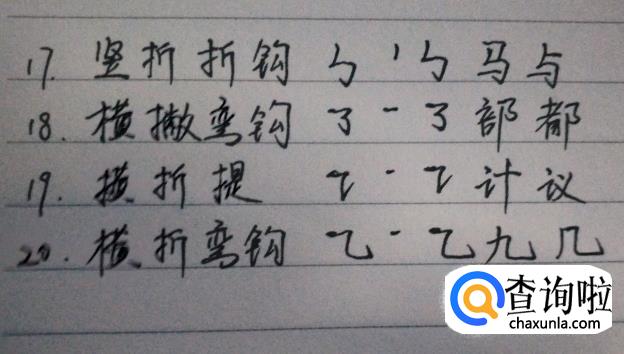 17. 竖折折钩 ㄣ 丨 ㄣ 马与
18. 横撇弯钩 ㇌ 一 ㇌ 部都
19. 横折提 ㇊ 一 ㇊ 计议
20. 横折弯钩 ㇈ 一 ㇈ 九几
查询啦
chaxunla.com